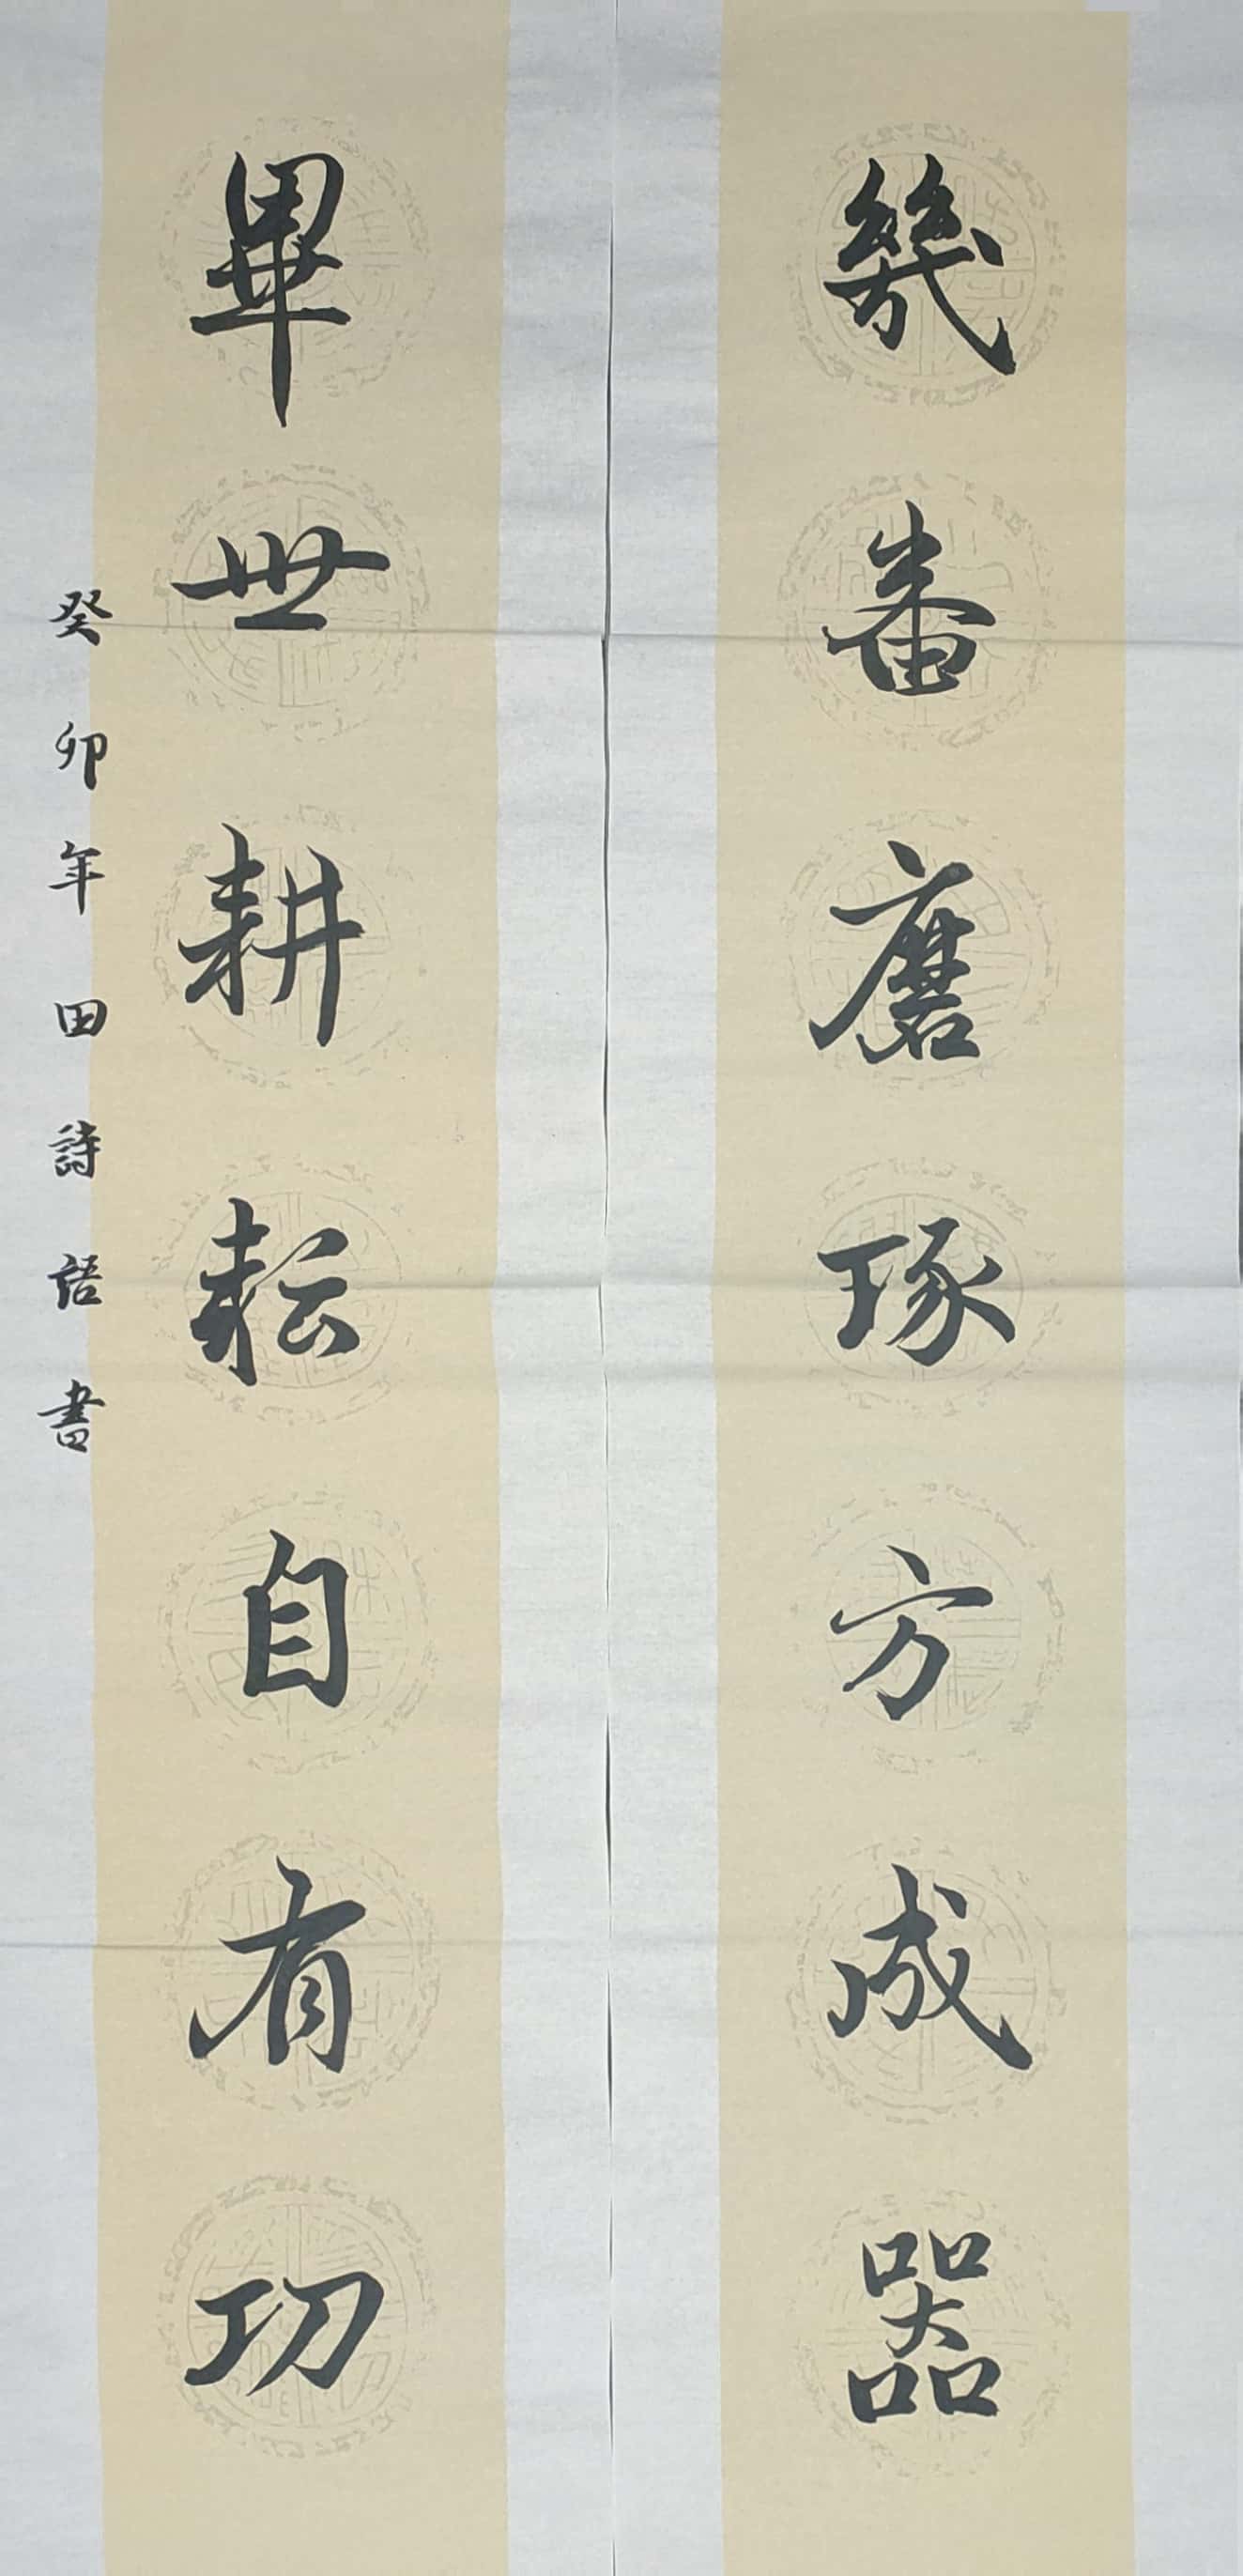 幾番磨琢方成器
畢世耕耘自有功
癸卯年田詩語書